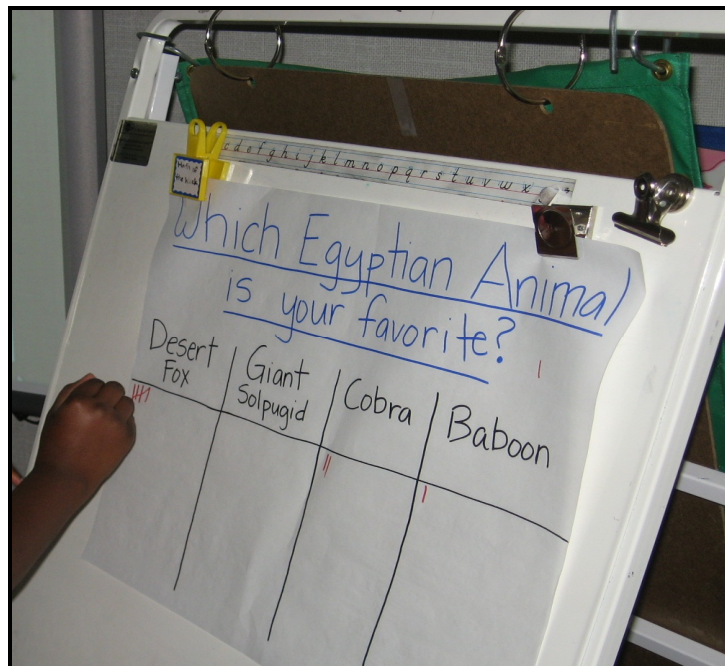 c d e f g h i j k l m n o p q r s t u v w x
Which Egyptian Animal
is your favorite?
Desert Fox
Giant Solpugid
Cobra
Baboon